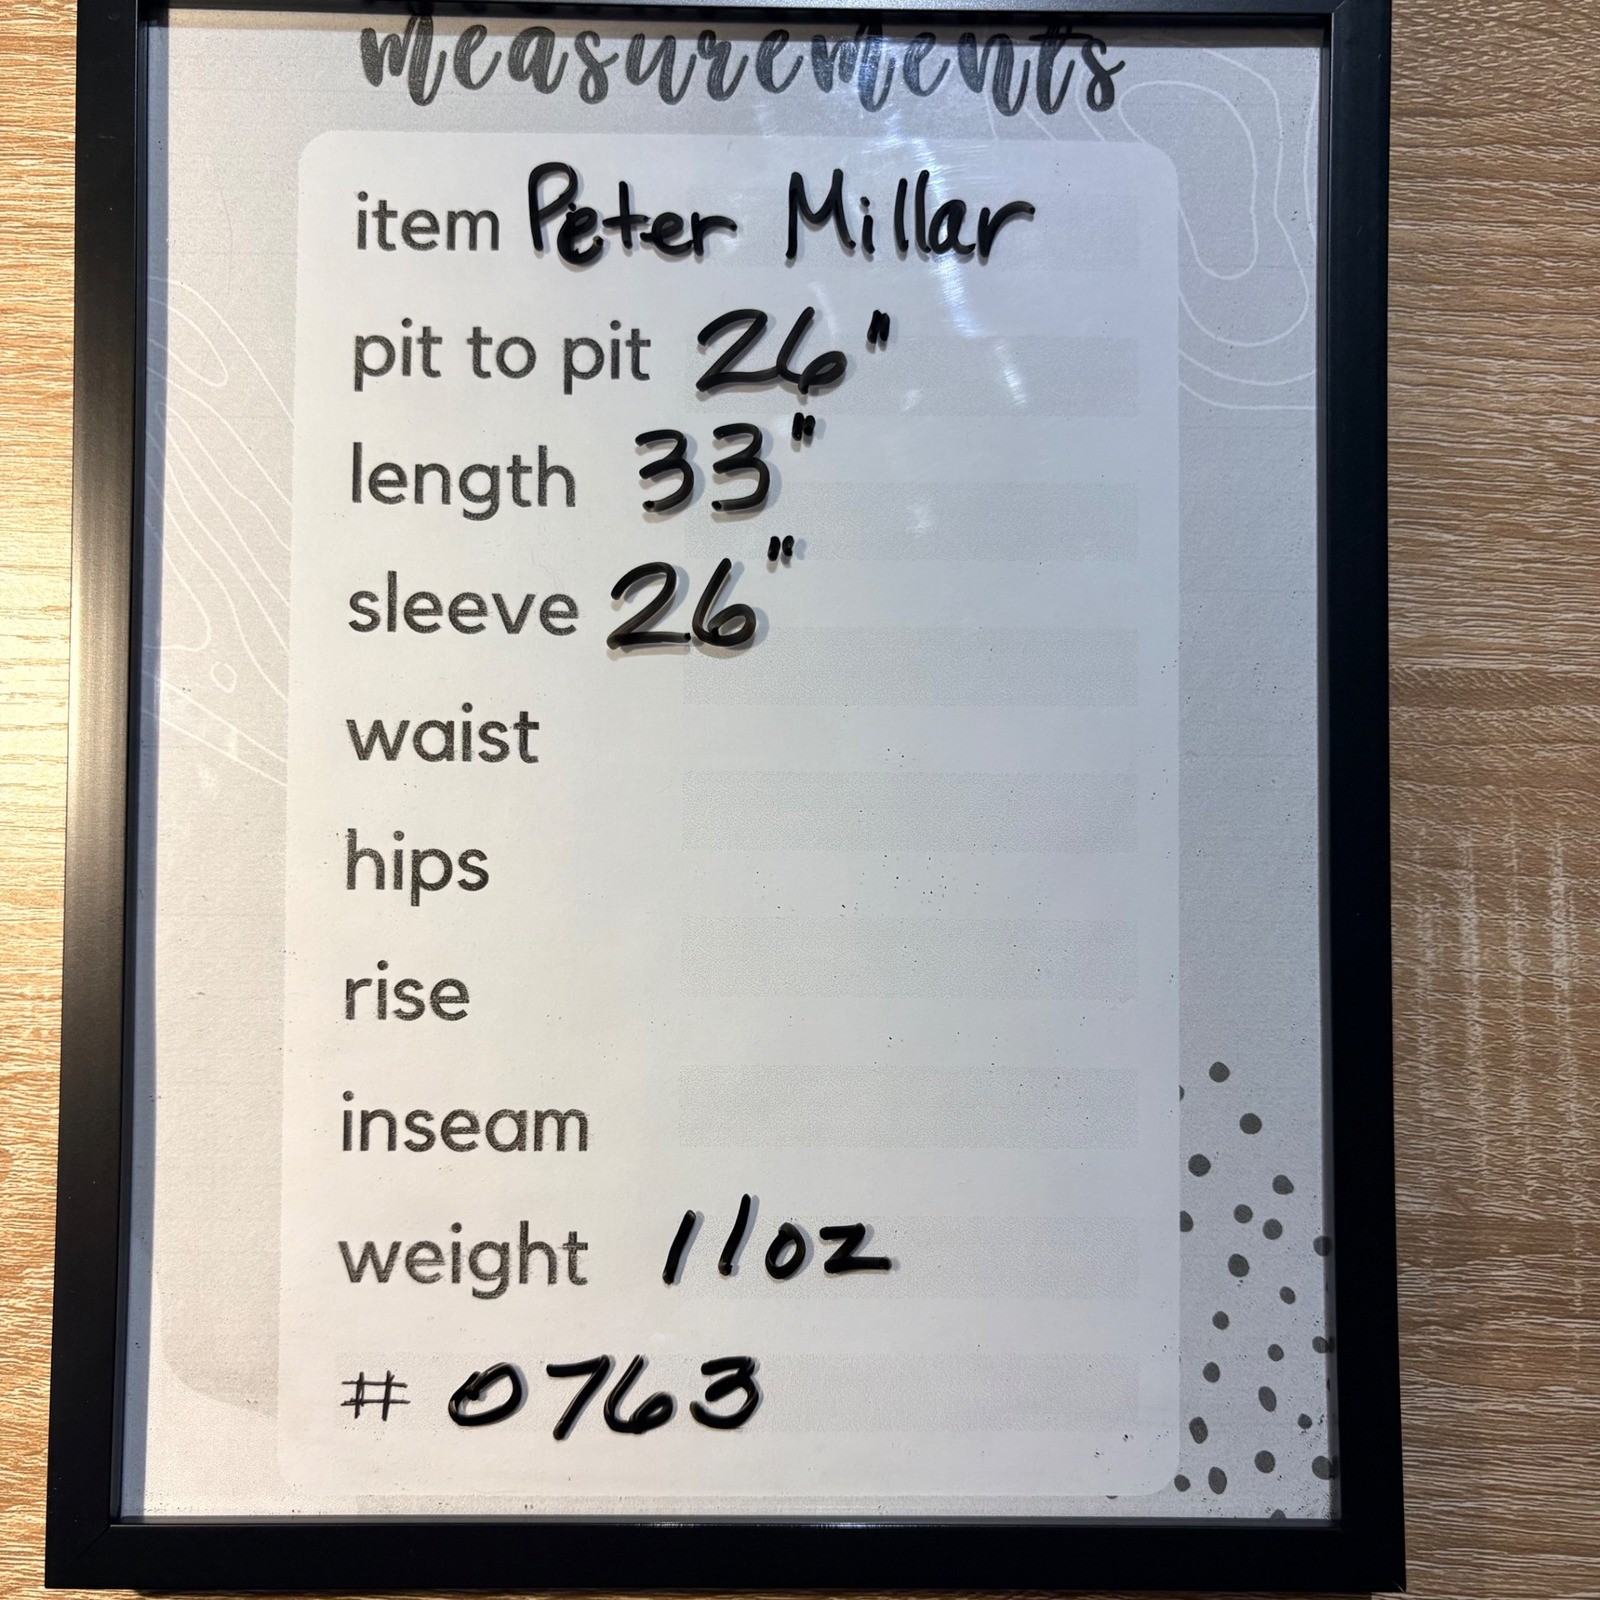 measurements
item Peter Millar
pit to pit 26"
length 33"
sleeve 26"
waist
hips
rise
inseam
weight 11oz
# 0763